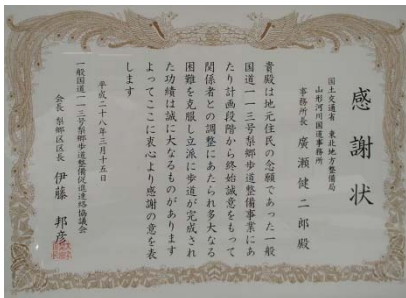 感謝状
国土交通省 東北地方整備局
山形河川国道事務所
事務所長 廣瀬健二郎殿
貴殿は地元住民の念願であった一般
国道一一三号梨郷歩道整備事業にあ
たり計画段階から終始誠意をもって
関係者との調整にあたられ多大なる
困難を克服し立派に歩道が完成され
た功績は誠に大なるものがあります
よってここに衷心より感謝の意を表
します
平成二十八年三月十五日
一般国道一一三号梨郷歩道整備促進連絡協議会
会長 梨郷区区長 伊藤 邦彦